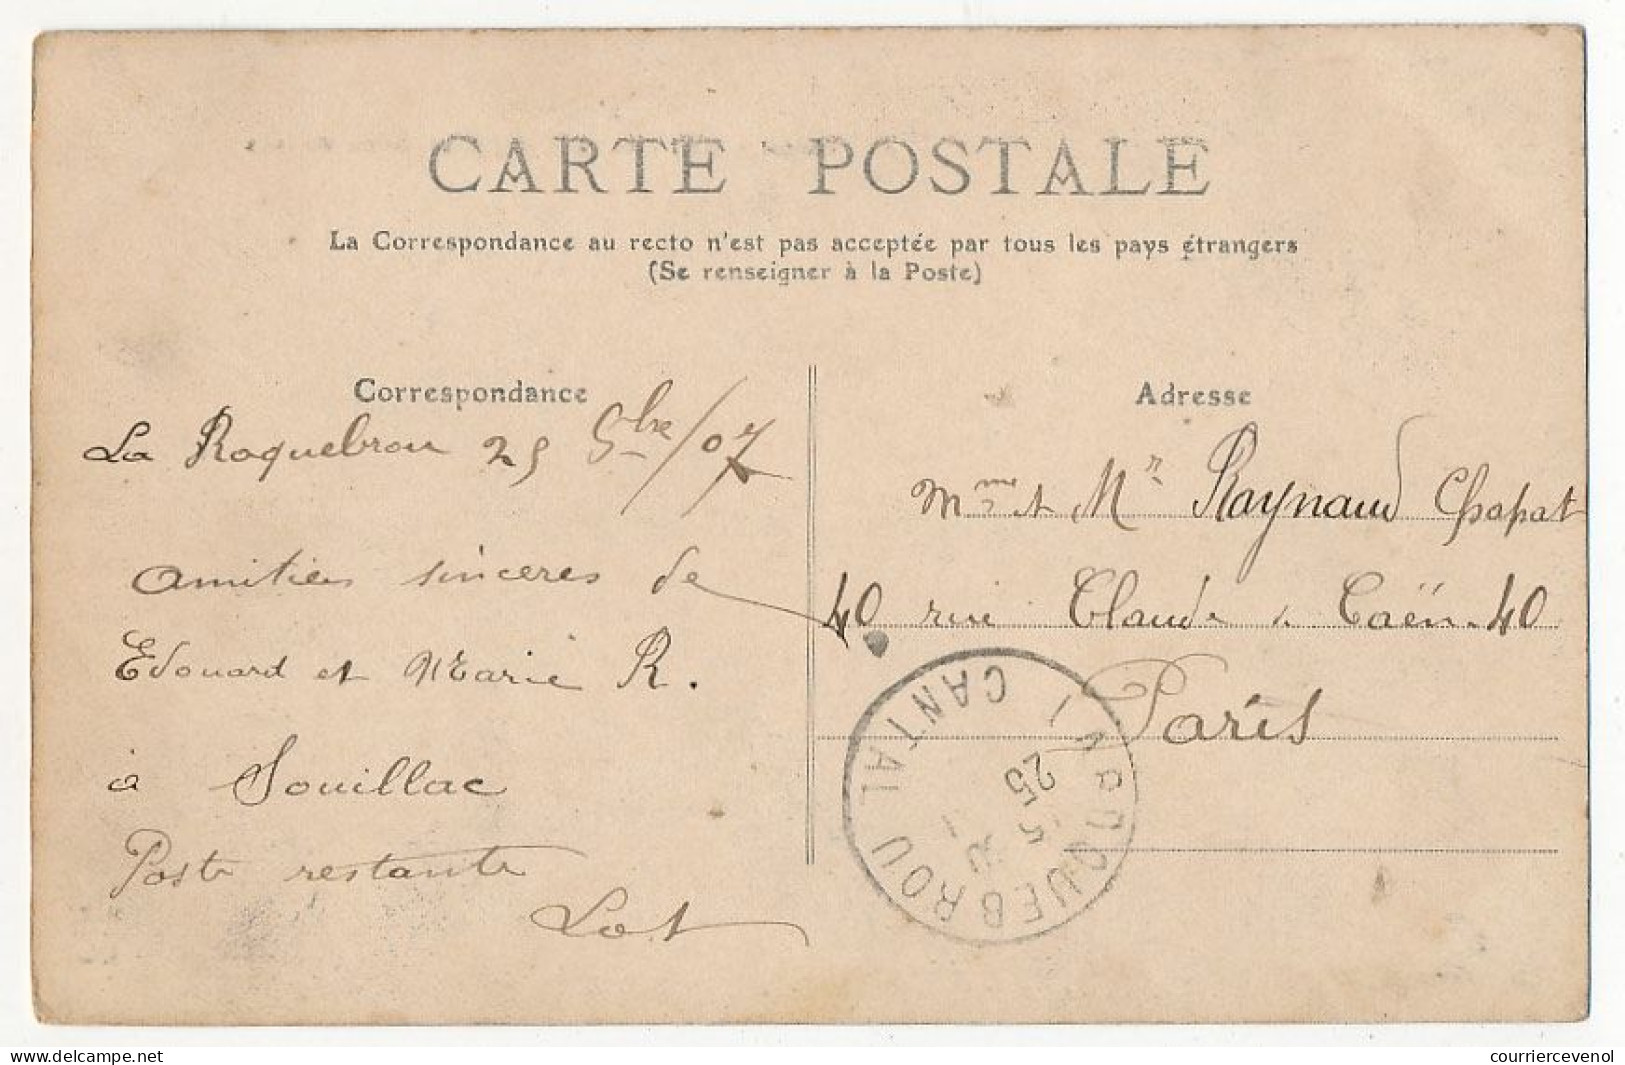 CARTE POSTALE
La Correspondance au recto n'est pas acceptée par tous les pays étrangers
(Se renseigner à la Poste)
Correspondance
La Roquebrou 25 9bre/07
Amitiés sincères de
Edouard et Marie R.
à Souillac
Poste restante
Lot
Adresse
Mme et Mr Raynaud Chapat
40 rue Claude Caën. 40
Paris
LAROQUEBROU CANTAL
25
courriercevenol